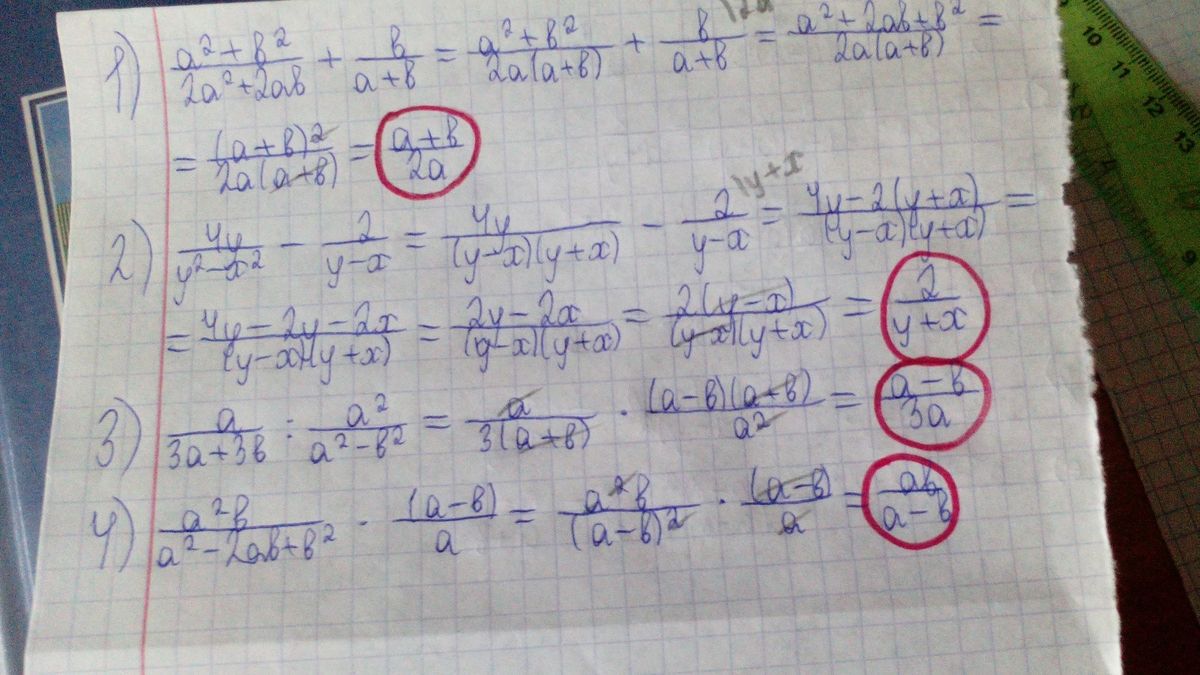 1) (a²+в²)/(2a²+2aв) + в/(a+в) = (a²+в²)/(2a(a+в)) + в/(a+в) |2a = (a²+2aв+в²)/(2a(a+в)) =
= (a+в)²/(2a(a+в)) = (a+в)/(2a)
2) 4y/(y²-x²) - 2/(y-x) = 4y/((y-x)(y+x)) - 2/(y-x) |y+x = (4y-2(y+x))/((y-x)(y+x)) =
= (4y-2y-2x)/((y-x)(y+x)) = (2y-2x)/((y-x)(y+x)) = 2(y-x)/((y-x)(y+x)) = 2/(y+x)
3) a/(3a+3в) : a²/(a²-в²) = a/(3(a+в)) · (a-в)(a+в)/a² = (a-в)/(3a)
4) a²в/(a²-2aв+в²) · (a-в)/a = a²в/(a-в)² · (a-в)/a = aв/(a-в)
10
11
12
13
9